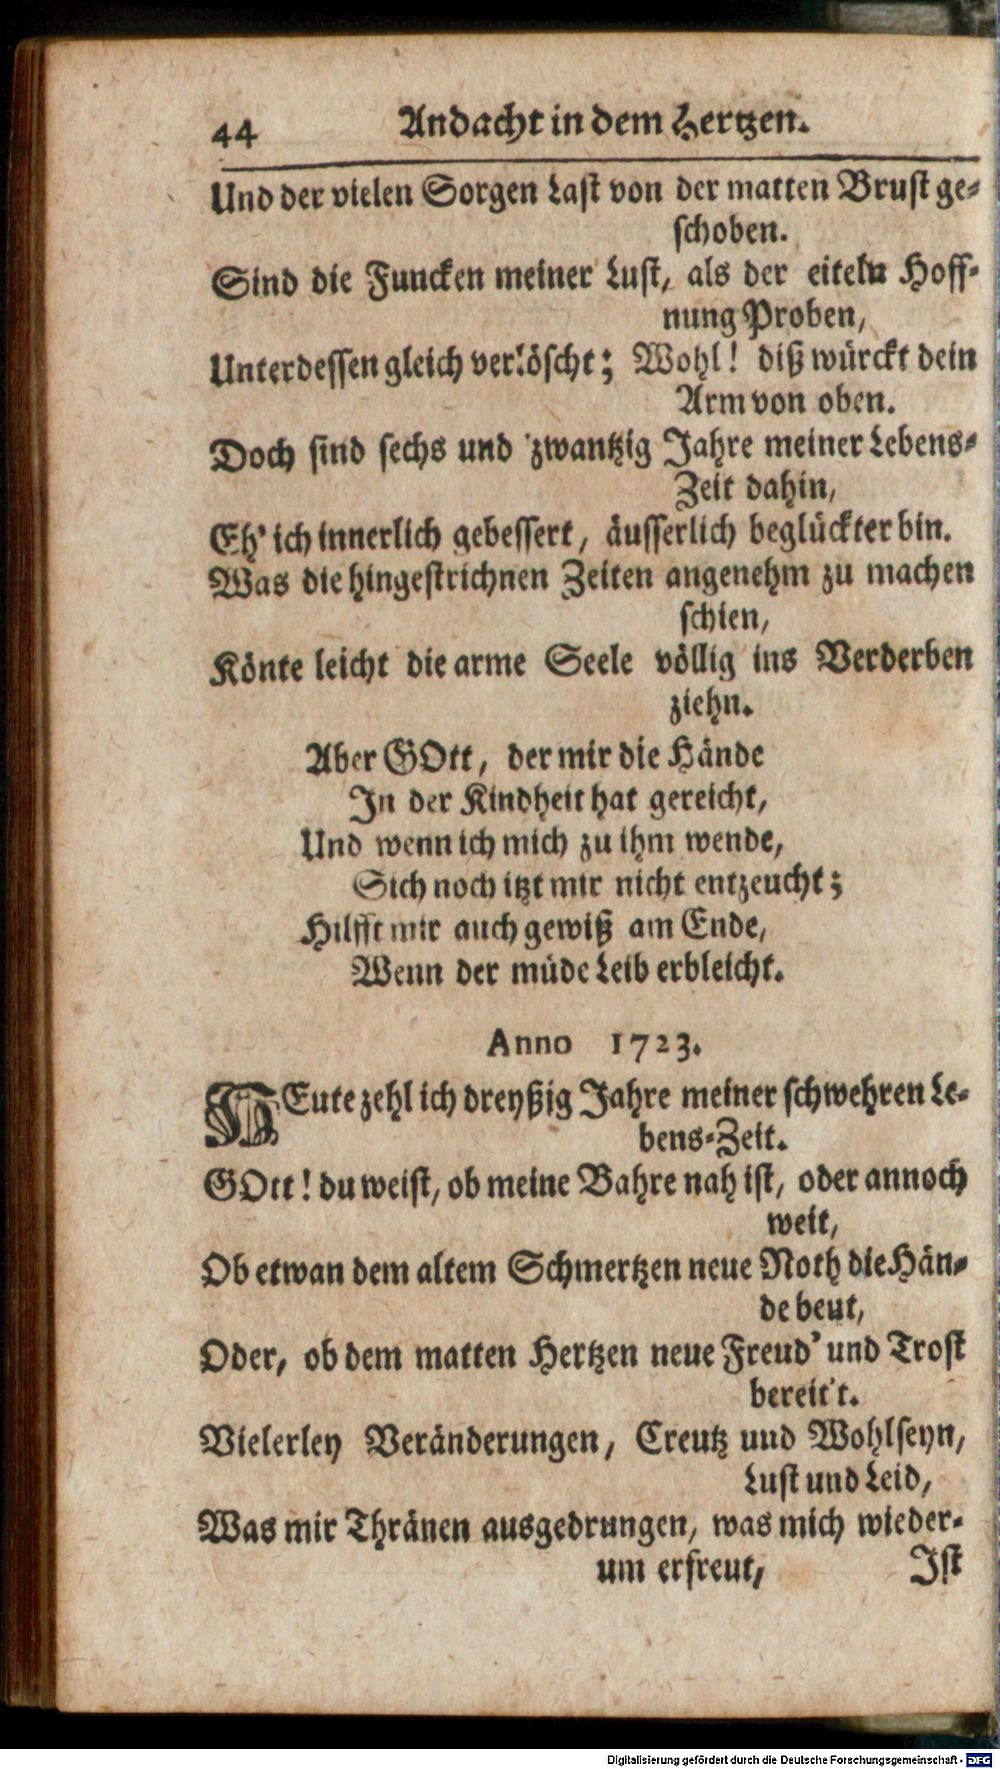 44 Andacht in dem Hertzen.
Und der vielen Sorgen Last von der matten Brust ge-
schoben.
Sind die Funcken meiner Lust, als der eiteln Hoff-
nung Proben,
Unterdessen gleich verlöscht; Wohl! diß würckt dein
Arm von oben.
Doch sind sechs und zwantzig Jahre meiner Lebens-
Zeit dahin,
Eh' ich innerlich gebessert, äusserlich beglückter bin.
Was die hingestrichnen Zeiten angenehm zu machen
schien,
Könte leicht die arme Seele völlig ins Verderben
ziehn.
Aber GOtt, der mir die Hände
In der Kindheit hat gereicht,
Und wenn ich mich zu ihm wende,
Sich noch itzt mir nicht entzeucht;
Hilfft mir auch gewiß am Ende,
Wenn der müde Leib erbleicht.
Anno 1723.
HEute zehl ich dreyßig Jahre meiner schwehren Le-
bens-Zeit.
GOtt! du weist, ob meine Bahre nah ist, oder annoch
weit,
Ob etwan dem altem Schmertzen neue Noth die Hän-
de beut,
Oder, ob dem matten Hertzen neue Freud' und Trost
bereit't.
Vielerley Veränderungen, Creutz und Wohlseyn,
Lust und Leid,
Was mir Thränen ausgedrungen, was mich wieder-
um erfreut,
Ist
Digitalisierung gefördert durch die Deutsche Forschungsgemeinschaft - DFG